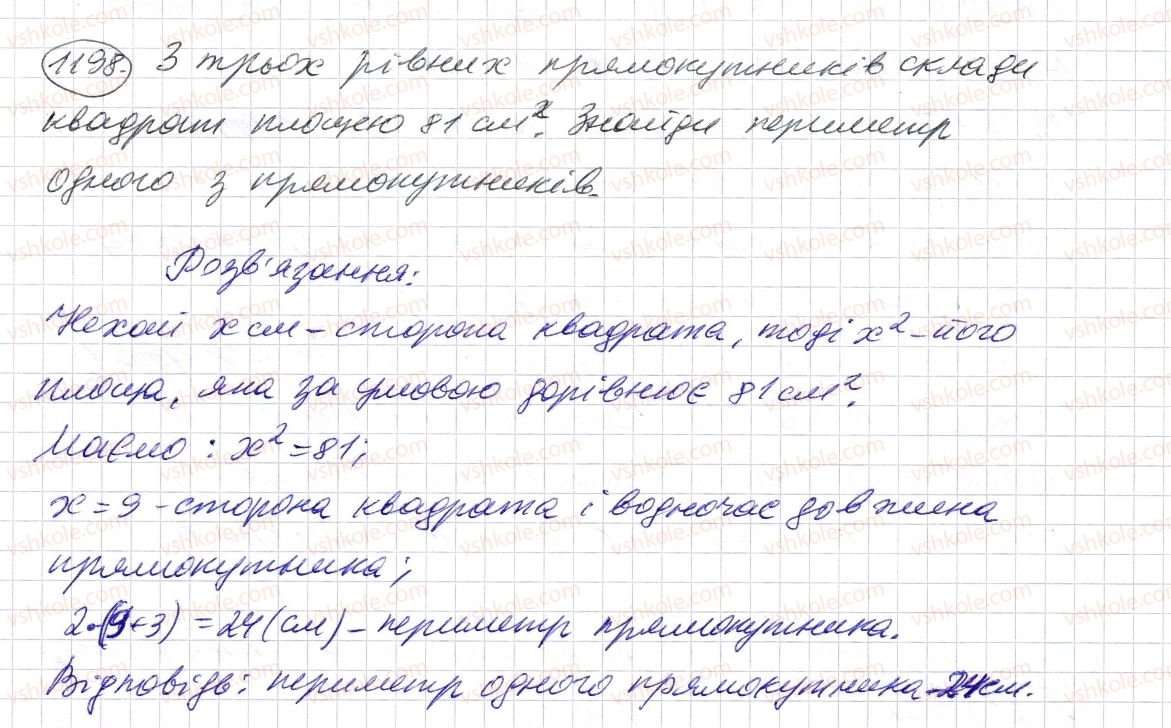 1198. З трьох рівних прямокутників склади
квадрат площею 81 см². Знайди периметр
одного з прямокутників.
Розв'язання:
Нехай x см - сторона квадрата, тоді x² - його
площа, яка за умовою дорівнює 81 см².
Маємо: x² = 81;
x = 9 - сторона квадрата і водночас довжина
прямокутника;
2·(9+3) = 24 (см) - периметр прямокутника.
Відповідь: периметр одного прямокутника - 24 см.